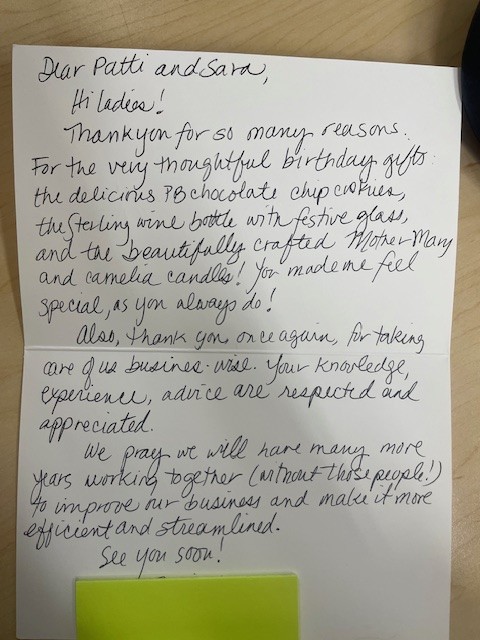 Dear Patti and Sara,
Hi ladies!
Thank you for so many reasons.
For the very thoughtful birthday gifts:
the delicious PB chocolate chip cookies,
the Sterling wine bottle with festive glass,
and the beautifully crafted Mother Mary
and camelia candles! You made me feel
special, as you always do!
Also, thank you once again, for taking
care of us business-wise. Your knowledge,
experience, advice are respected and
appreciated.
We pray we will have many more
years working together (without those people!)
to improve our business and make it more
efficient and streamlined.
See you soon!